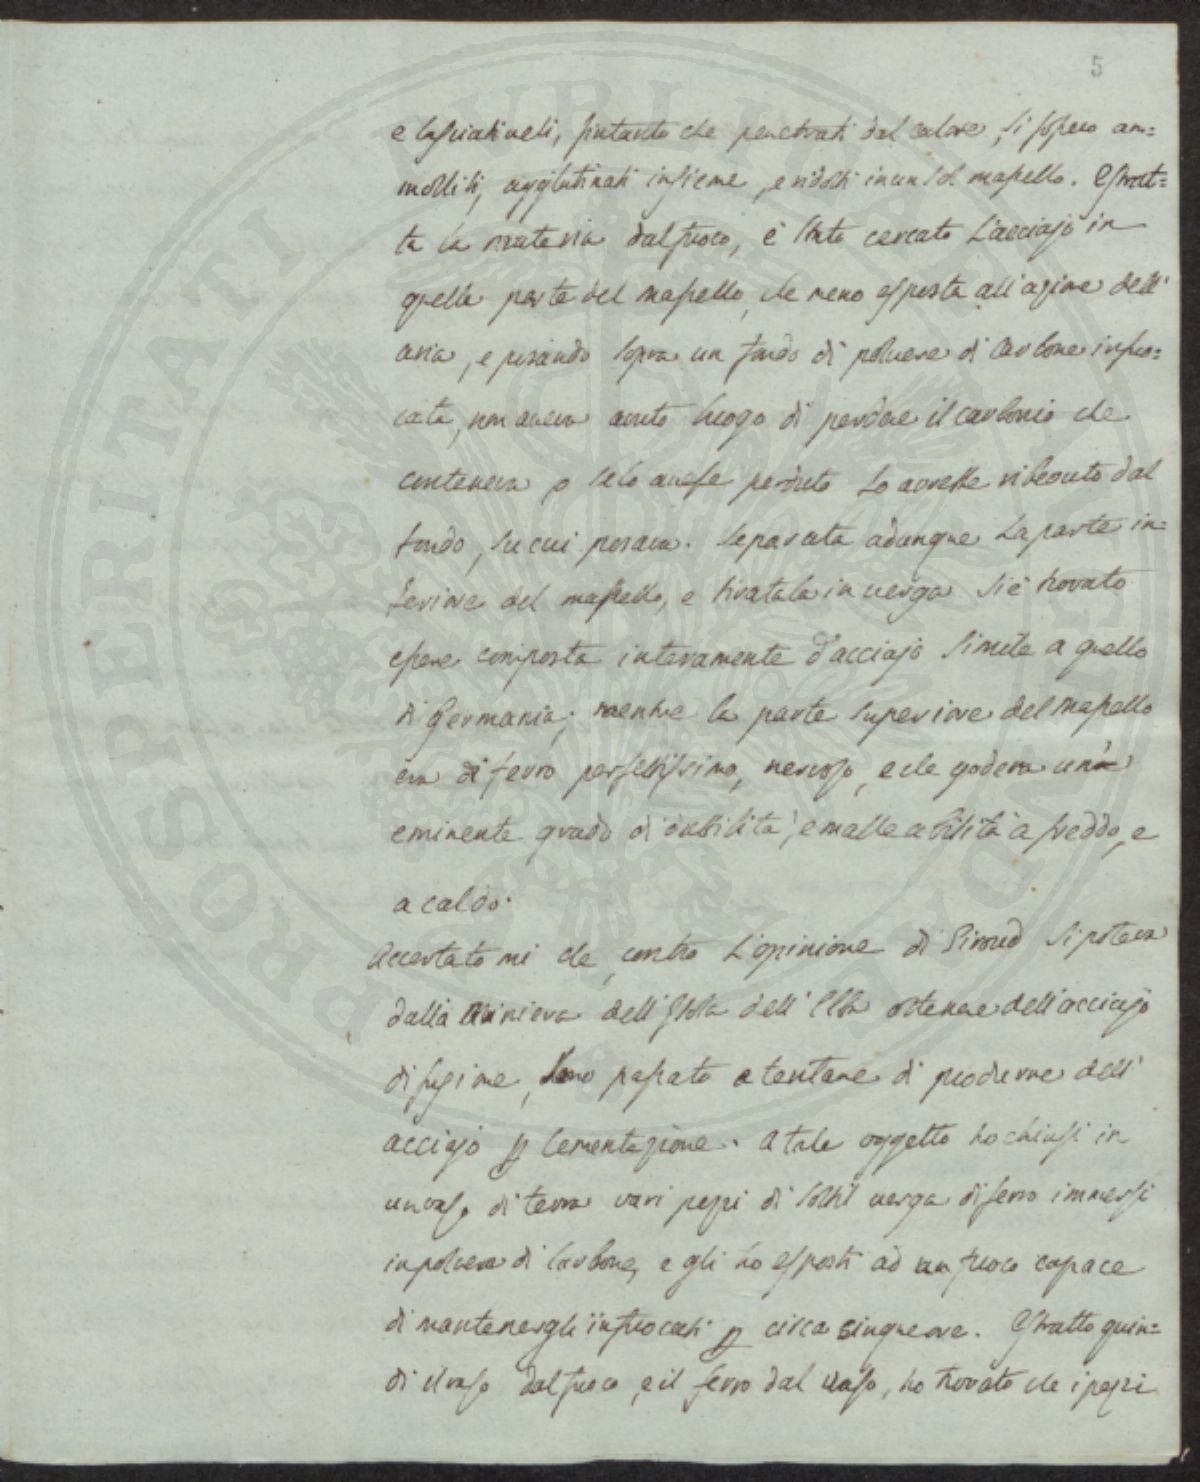 5
e lasciativeli, fintanto che penetrati dal calore, si fossero am=
molliti, agglutinati insieme, e ridotti in un sol massello. Estrat=
ta la materia dal fuoco, è stato cercato l'acciajo in
quella parte del massello, che meno esposta all'azione dell'
aria, e posando sopra un fondo di polvere di carbone infuo=
cata, non aveva avuto luogo di perdere il carbonio che
conteneva o se lo avesse perduto lo avrebbe ribevuto dal
fondo, su cui posava. Separata adunque la parte in=
feriore del massello, e tiratala in verga si è trovato
essere composta interamente d'acciajo simile a quello
di Germania; mentre la parte superiore del massello
era di ferro perfettissimo, nervoso, e che godeva un
eminente grado di duttilità, e malleabilità a freddo, e
a caldo.
Accertatomi che, contro l'opinione di Giroud si poteva
dalla Miniera dell'Isola dell'Elba ottenere dell'acciajo
di fusione, sono passato a tentare di produrre dell'
acciajo p cementazione. A tale oggetto ho chiusi in
un vaso di terra vari pezzi di sottil verga di ferro immersi
in polvere di carbone, e gli ho esposti ad un fuoco capace
di mantenergli infuocati p circa cinque ore. Estratto quin=
di il vaso dal fuoco, e il ferro dal vaso, ho trovato che i pezzi
PROSPERITATI PUBLICAE AUGENDAE